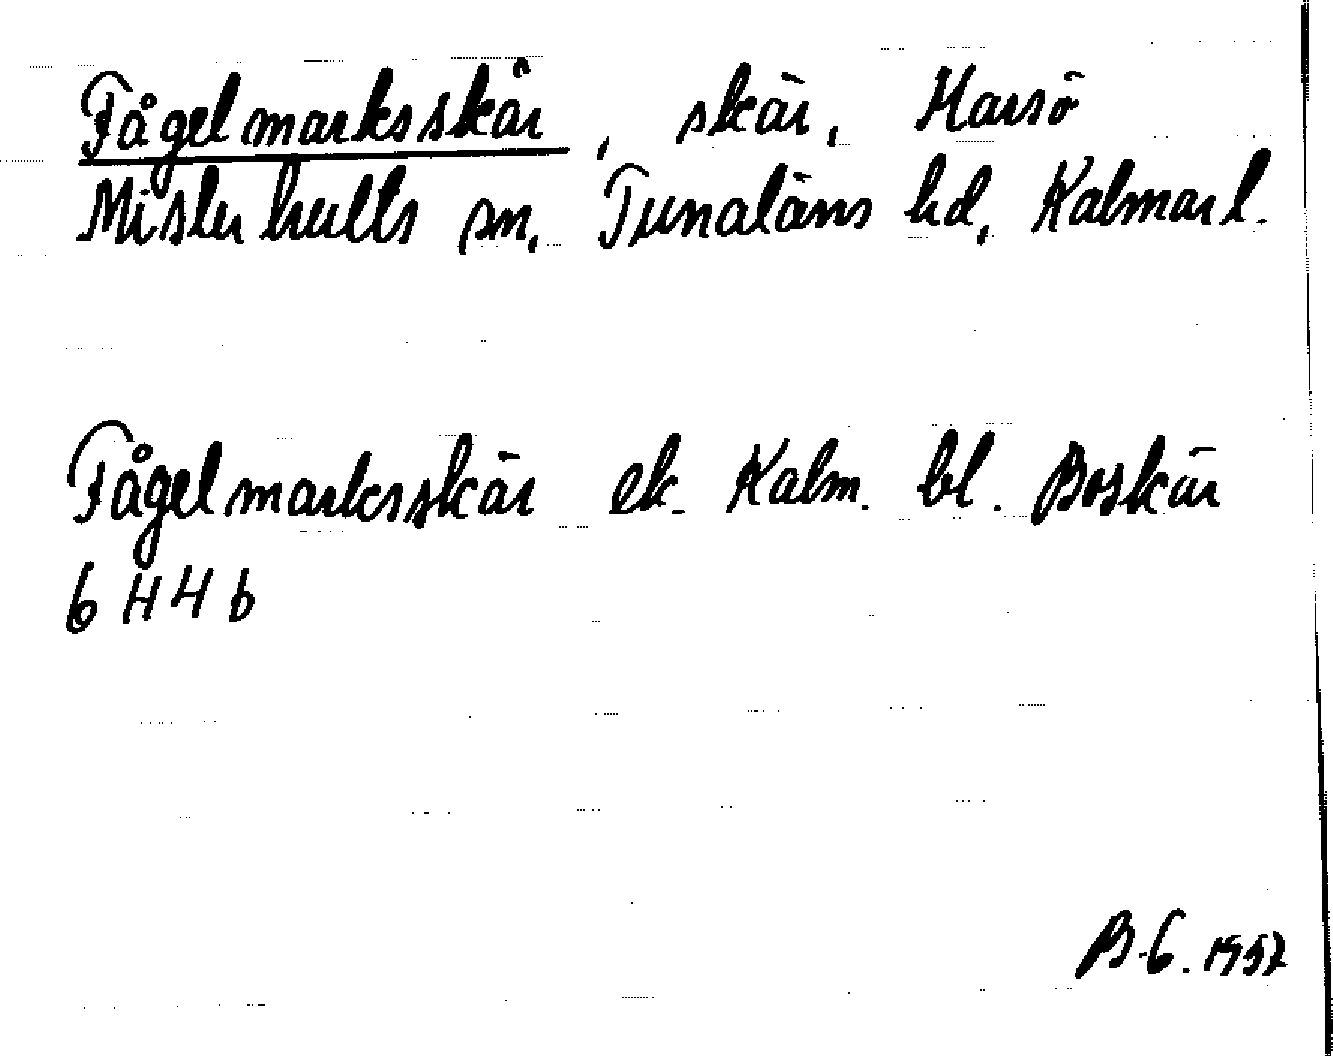 Fågelmarksskär, skär, Harsö
Misterhults sn, Tunaläns hd, Kalmar l.
Fågelmarksskär ek. Kalm. bl. Boskär
6 H 4 b
B-G. 1957